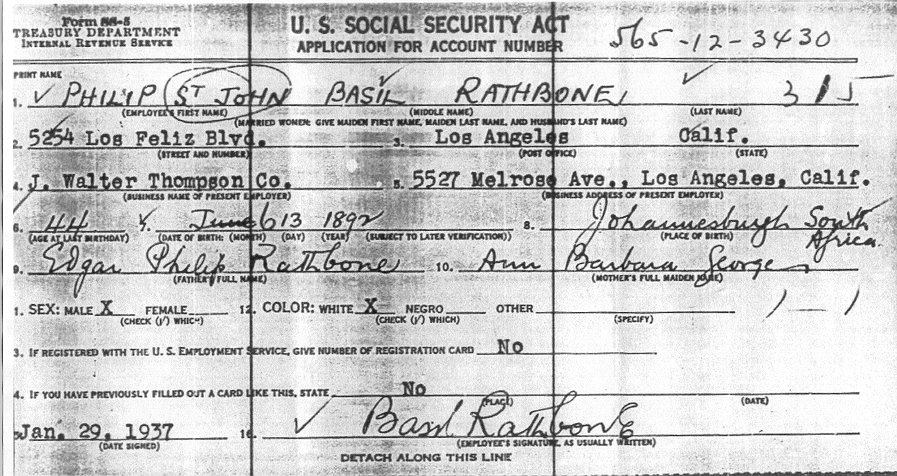 Form SS-5
TREASURY DEPARTMENT
INTERNAL REVENUE SERVICE
U. S. SOCIAL SECURITY ACT
APPLICATION FOR ACCOUNT NUMBER
565-12-3430
PRINT NAME
1. PHILIP ST JOHN BASIL RATHBONE, 315
(EMPLOYEE'S FIRST NAME) (MIDDLE NAME) (LAST NAME)
(MARRIED WOMEN: GIVE MAIDEN FIRST NAME, MAIDEN LAST NAME, AND HUSBAND'S LAST NAME)
2. 5254 Los Feliz Blvd. 3. Los Angeles Calif.
(STREET AND NUMBER) (POST OFFICE) (STATE)
4. J. Walter Thompson Co. 5. 5527 Melrose Ave., Los Angeles, Calif.
(BUSINESS NAME OF PRESENT EMPLOYER) (BUSINESS ADDRESS OF PRESENT EMPLOYER)
6. 44 7. June 6 13 1892 8. Johannesburgh South Africa.
(AGE AT LAST BIRTHDAY) (DATE OF BIRTH: (MONTH) (DAY) (YEAR) (SUBJECT TO LATER VERIFICATION)) (PLACE OF BIRTH)
9. Edgar Philip Rathbone 10. Ann Barbara George
(FATHER'S FULL NAME) (MOTHER'S FULL MAIDEN NAME)
1. SEX: MALE X FEMALE 12. COLOR: WHITE X NEGRO OTHER
(CHECK (√) WHICH) (CHECK (√) WHICH) (SPECIFY)
3. IF REGISTERED WITH THE U. S. EMPLOYMENT SERVICE, GIVE NUMBER OF REGISTRATION CARD No
4. IF YOU HAVE PREVIOUSLY FILLED OUT A CARD LIKE THIS, STATE No
(PLACE) (DATE)
5. Jan. 29, 1937 16. Basil Rathbone
(DATE SIGNED) (EMPLOYEE'S SIGNATURE, AS USUALLY WRITTEN)
DETACH ALONG THIS LINE